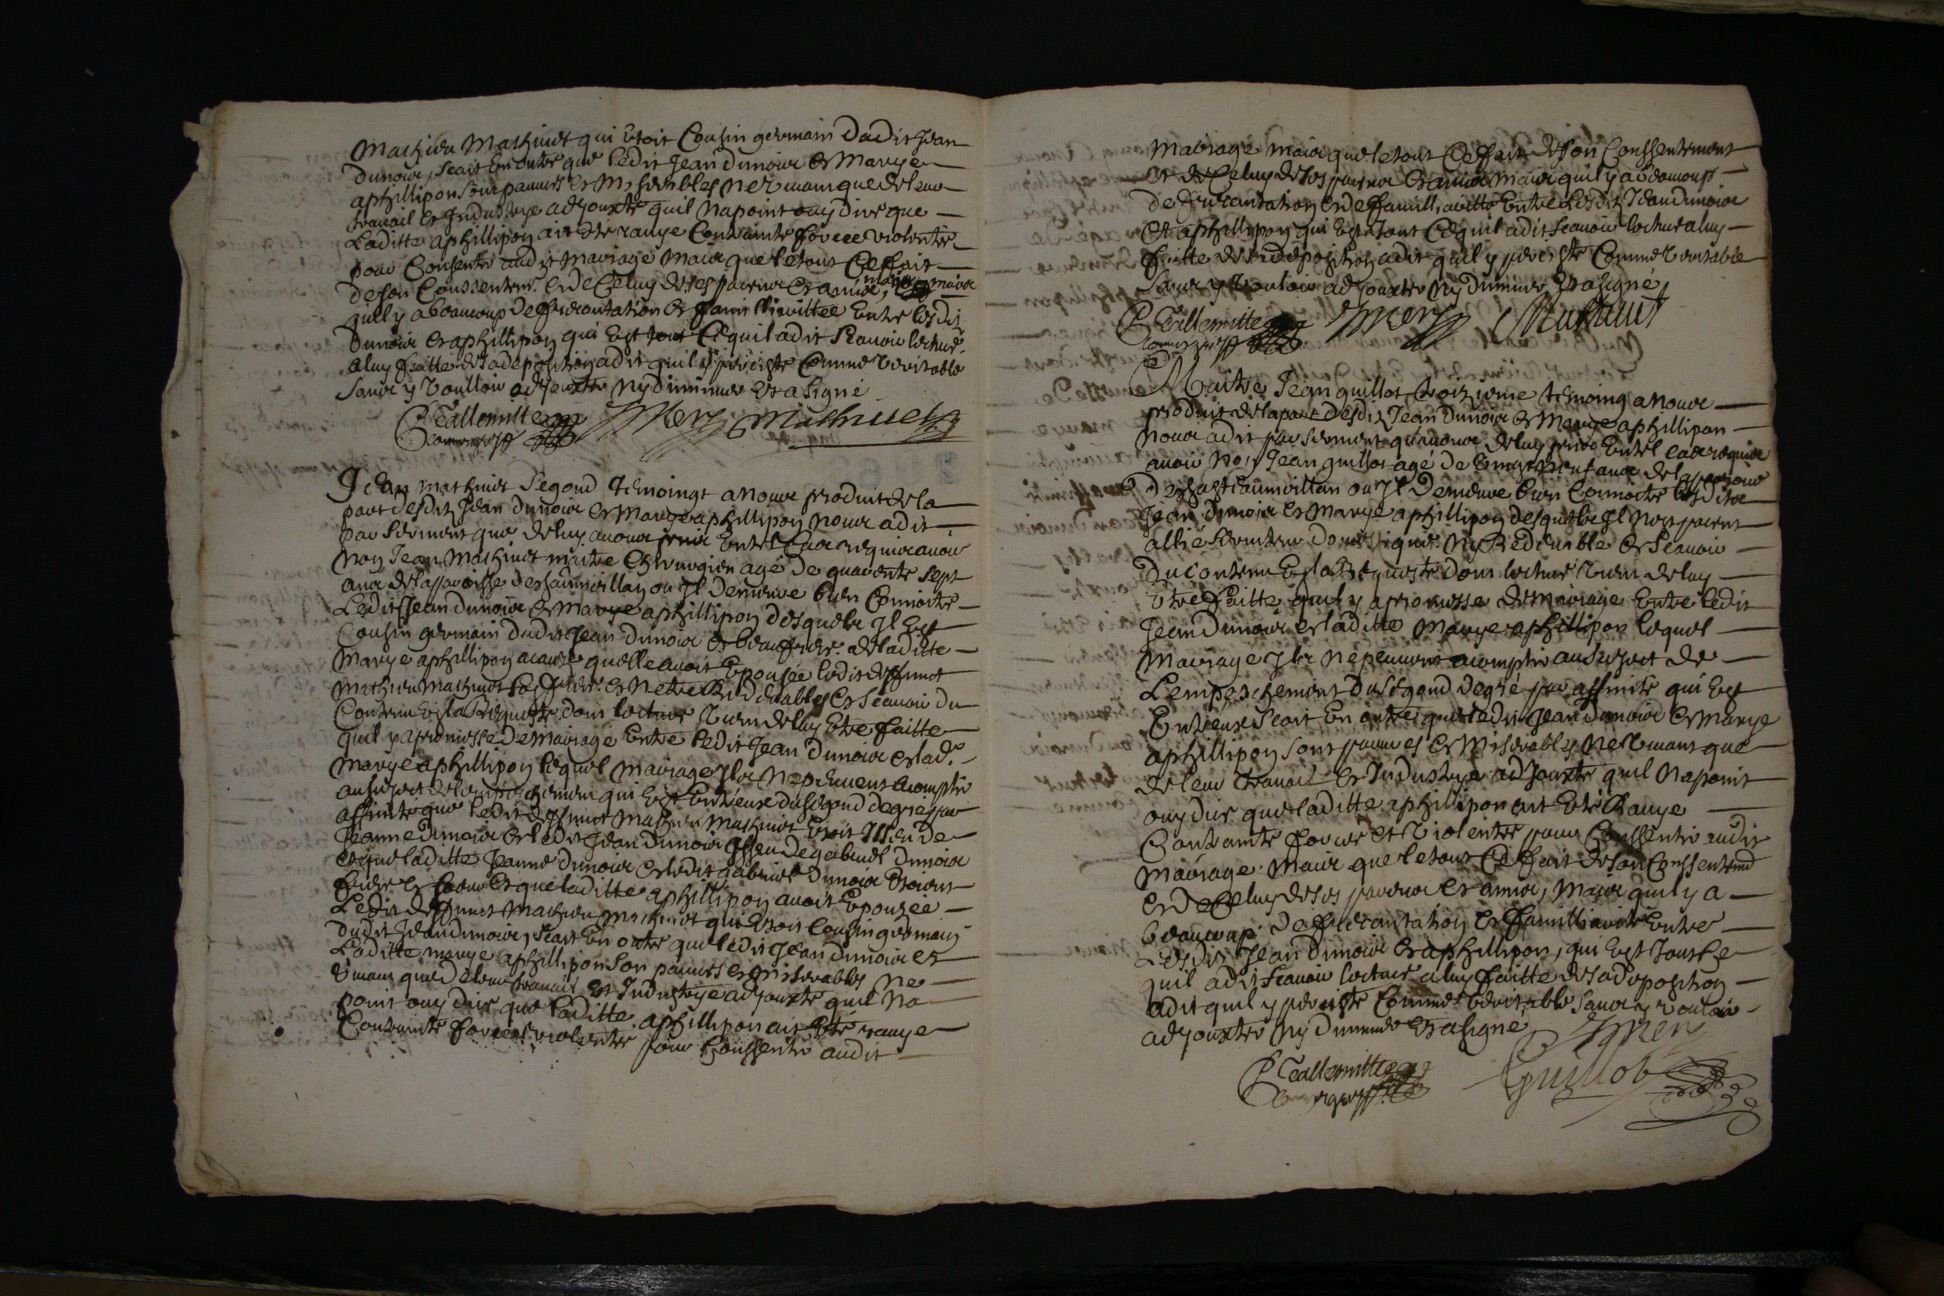 Mathieu Mathivet qui Etoit Cousin germain dudit Jean
dunoier, scait En outre que ledit Jean dunoier Et Marye
aphillipon sont pauvres Et miserables ne vivant que de leur
travail Et Industrye adjouxte quil Na point ouy dire que
Laditte aphillipon ait Eté ravye Contrainte forcée violentée
pour Consentir audit Mariage mais que le tout Ce fait
de son Conssentemt. Et de Celuy de ses parens Et amis, mais
quil y a beaucoup de frecantation Et famillieritté Entre lesdis
Dunoier Et aphillipon qui Est tout Ce quil a dit scavoir lecture
a luy faitte de sa deposition a dit quil y perciste Comme veritable
sans y voulloir adjouxter ny diminuer Et a signé
P Teillemitte Mery Mathivet
Commissaire
Jean mathivet segond temoingt a Nous produit de la
part desdis Jean dunoier Et Marye aphillipon Nous a dit
par serment que de luy avons prins Entel Cas requis avoir
Non Jean Mathivet maitre Chirurgien agé de quarente sept
ans de la paroisse de ou Jl demeure bien Connoitre
Ledit Jean dunoier Et Marye aphillipon desquels Jl Est
Cousin germain dudit Jean dunoier Et beau frere de laditte
Marye aphillipon a cause quelle avoit Epousée ledit deffunct
Mathieu Mathivet son frere Et Netre Redevable Et scavoir du
Contenu En la Requeste dont lecture vient de luy Etre faitte
quil y a promesse de Mariage Entre ledit Jean dunoier Et lad.e
Marye aphillipon lequel Mariage Jls Ne peuvent acomplir
au sujet de lempechement qui Est Entreux du segond degré par
affinité que ledit deffunct Mathieu Mathivet Etoit Issu de
Jeanne dunoier Et ledit Jean dunoier Issu de gabriel dunoier
Et que laditte Jeanne dunoier Et ledit gabriel dunoier Etoient
frere Et soeur Et que laditte aphillipon avoit Epouzée
Ledit deffunct Mathieu Mathivet qui Etoit Cousin germain
dudit Jean dunoier, scait En outre que ledit Jean dunoier Et
Laditte marye aphillipon son pauvres Et miserables Ne
vivant que de leur travail Et Industrye adjouxte quil Na
point ouy dire que laditte aphillipon ait Eté ravye
Contrainte forcée violentée pour Conssentir audit
Mariage mais que le tout Ce fait de son Conssentement
Et de Celuy de ses parens Et amis mais quil y a beaucoup
de frecantation Et de famillieritté Entre lesdis Jean dunoier
Et aphillipon qui Est tout Ce quil a dit scavoir lecture a luy
faitte de sa deposition a dit quil y perciste Comme veritable
sans y voulloir adjouxter Ny diminuer Et a signé
P Teillemitte Mery Mathivet
Commissaire
Maitre Jean guillot troizieme temoing a Nous
produit de la part desdis Jean dunoier Et Marye aphillipon
Nous a dit par serment quavons de luy prins Entel Cas requis
avoir Non Jean guillot agé de ans de la paroisse
de ou Jl Demeure bien Connoitre lesdits
Jean dunoier Et Marye aphillipon desquels Jl Non parent
allié serviteur domestique Ny Redevable Et scavoir
Du Contenu En la Requeste dont lecture vient de luy
Etre faitte quil y a promesse de Mariage Entre ledit
Jean Dunoier Et laditte Marye aphillipon lequel
Mariage Jls Ne peuvent acomplir au sujet de
Lempeschement du segond degré par affinité qui Est
Entreux scait En outre que ledit Jean dunoier Et Marye
aphillipon sont pauvres Et Miserables Ne vivant que
de leur travail Et Industrye adjouxte quil Na point
ouy dire que laditte aphillipon ait Eté Ravye
Contrainte forcée Et violentée pour Conssentir audit
Mariage Mais que le tout Ce fait de son Conssentemt
Et de Celuy de ses parens Et amis, Mais quil y a
beaucoup de frecantation Et famillieritté Entre
Lesdis Jean dunoier Et aphillipon, qui Est tout Ce
quil a dit scavoir lecture a luy faitte de sa deposition
a dit quil y perciste Comme veritable sans y voulloir
adjouxter Ny diminuer Et a signé Mery
P Teillemitte Guillot
Commissaire